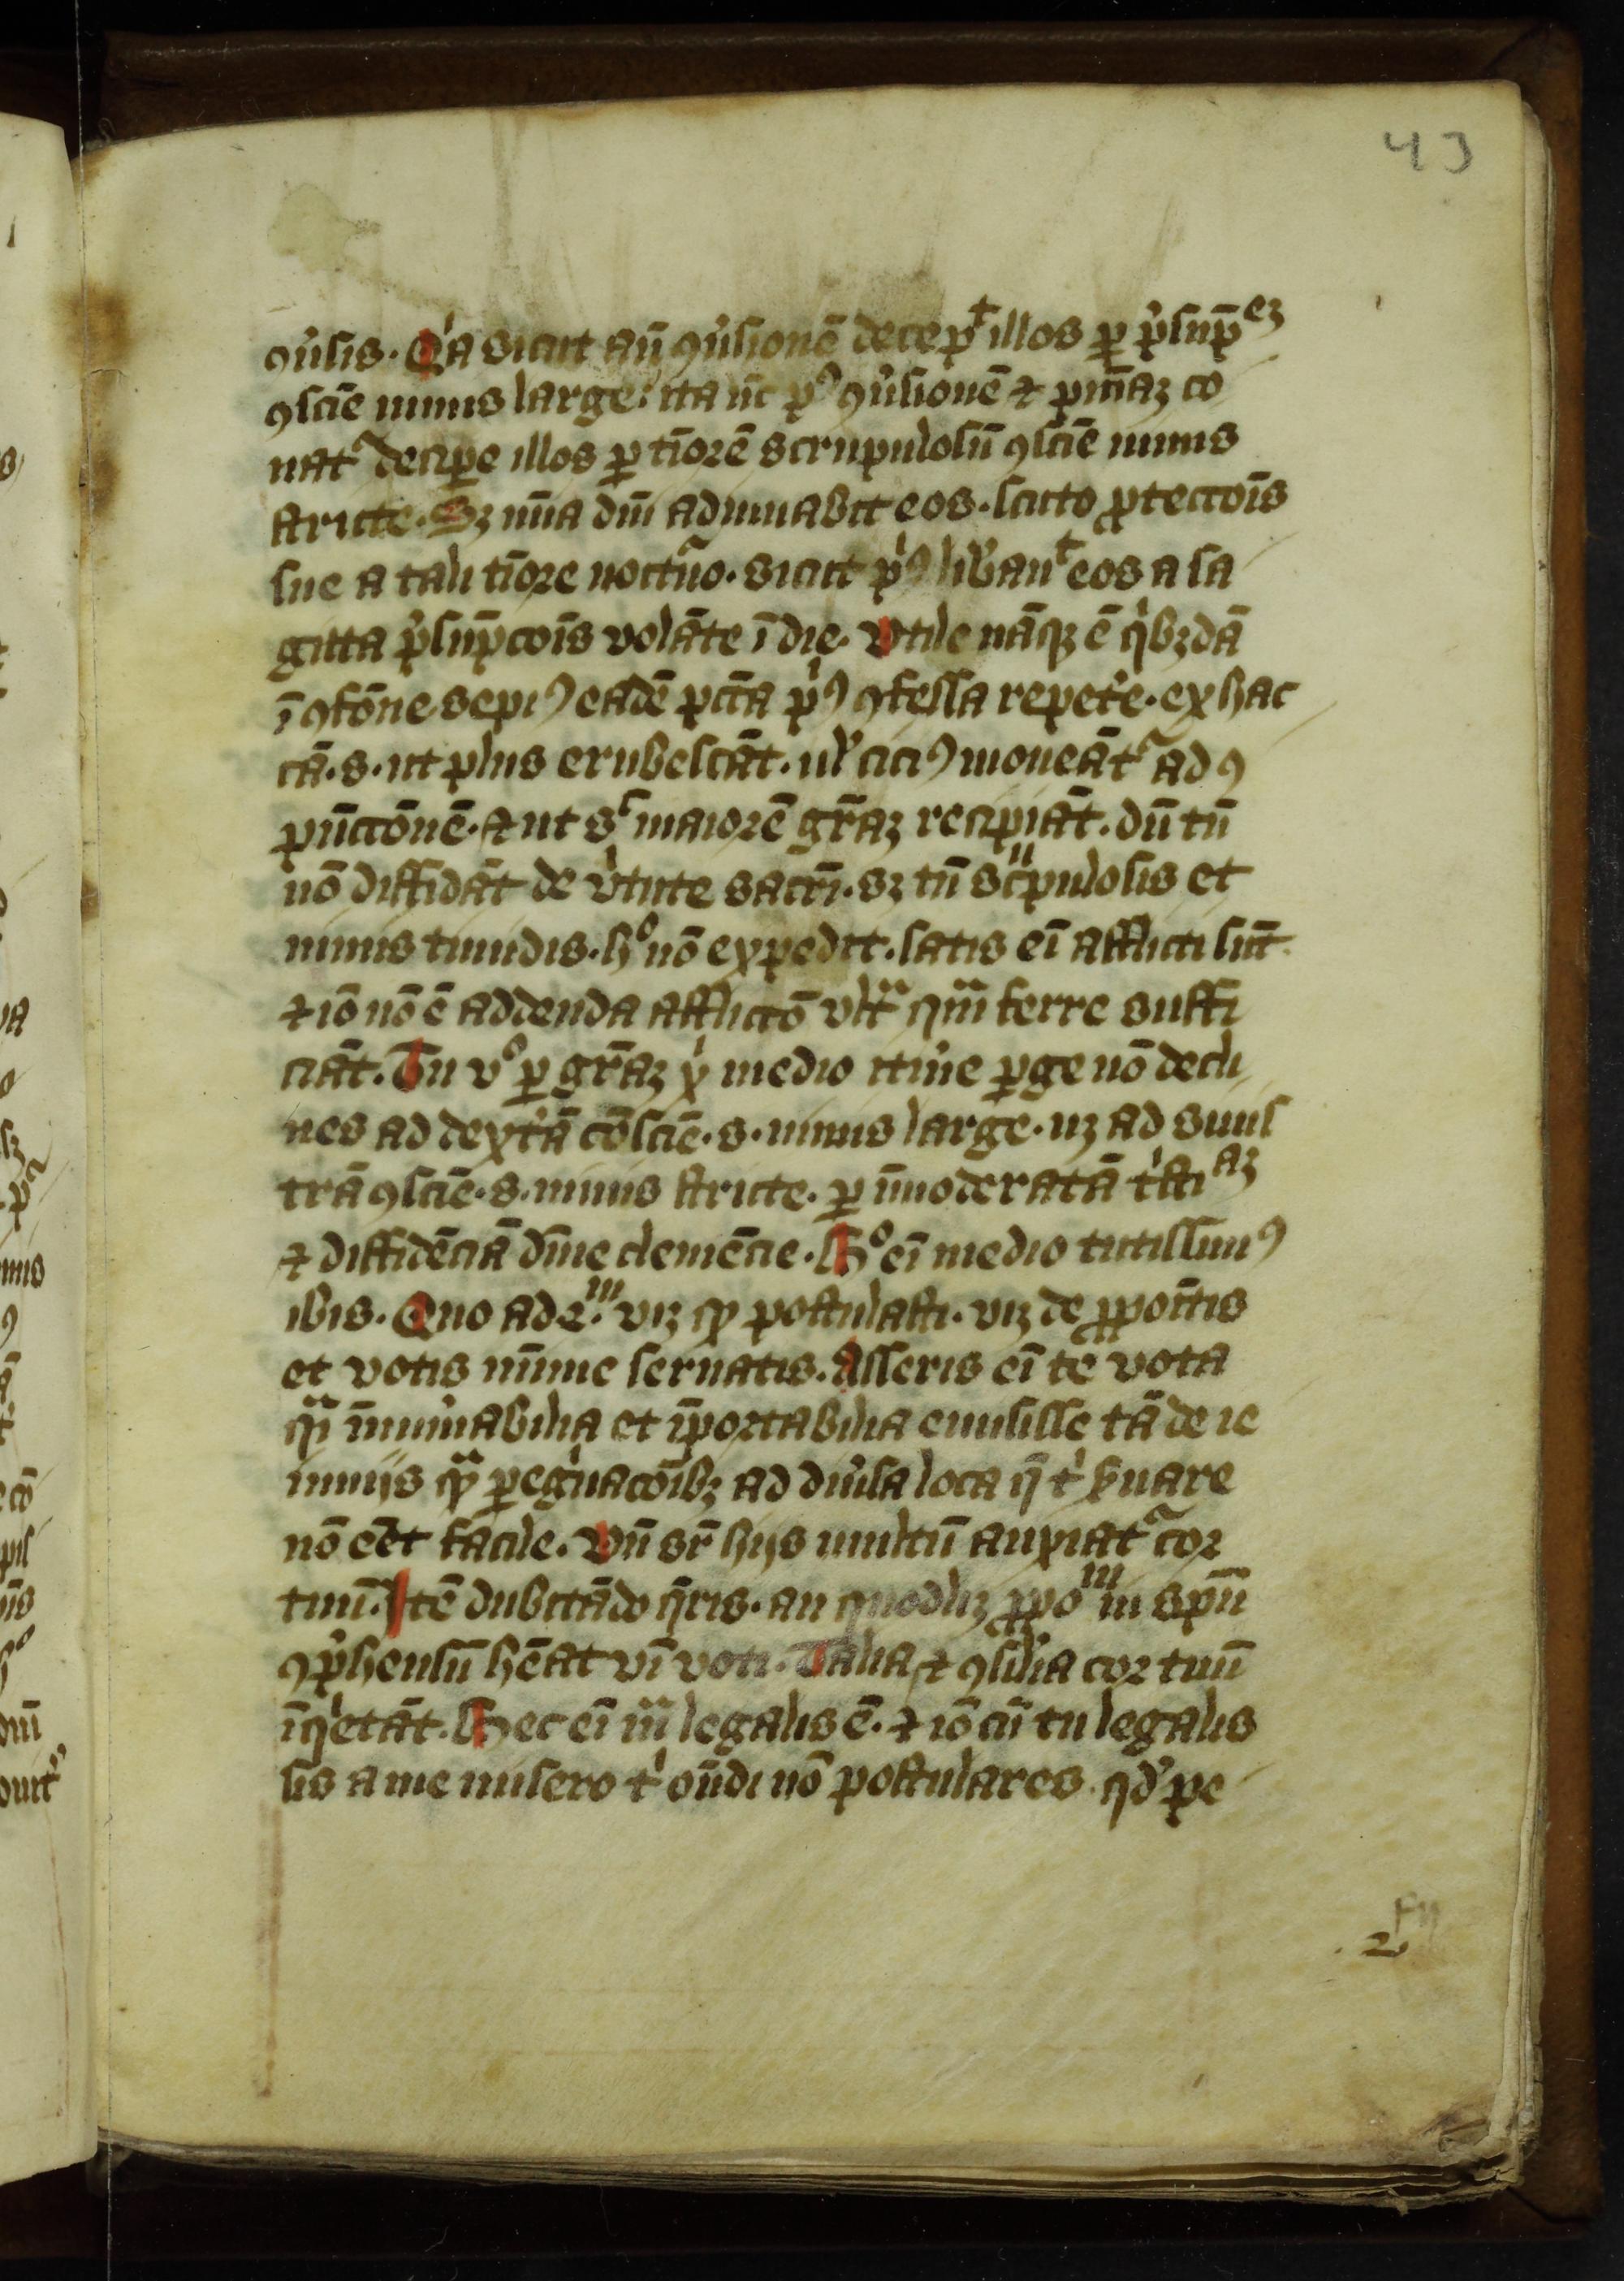 43
ꝯu̓sis. Qͥa sicut an̄ ꝯu̓sionē decepᵗ illos ꝑ p̓sūp̄eꝫ
ꝯscīe nimis large: ita nc̄ pꝰ ꝯu̓sionē ⁊ pn̄iaꝫ co
nat᷑ decipe illos ꝑ tīorē scrupulosū ꝯscīe nimis
stricte. Sꝫ mīa dn̄i adiuuabit eos. scuto ꝓtectōis
sue a tali tīore noct᷑no. sicut pͥꝰ lib̓auᵗ eos a sa
gitta p̓sūpcōis volāte ī die. Vtile nāqꝫ ē qͥbꝫdā
ī ꝯfōne sepiꝰ eadē pctā pͥꝰ ꝯfessa repet̓e. ex hac
cā. s. ut plus erubescāt. ul̓ ciciꝰ moueāt᷑ ad ꝯ
pūctōnē. ⁊ ut sͨ maiorē gr̄aꝫ recipiāt. dū tn̄
nō diffidāt de v̓tute sacrī. sꝫ tn̄ scͬpulosis et
nimis timidis. hᵒ nō expedit. satis eī afflicti sūt.
⁊ iō nō ē addenda afflictō vltᷓ qᷓm ferre suffi
ciāt. Tu vᵒ ꝑ gr̄aꝫ xͥ medio itin̓e ꝑge nō decli
nes ad dext̓ā cōscīe. s. nimis large. uꝫ ad sinis
trā ꝯscīe. s. nimis stricte. ꝑ īmoderatā tͥstiaꝫ
⁊ diffidēciā dīne clemēcie. Hᵒ eī medio tutissimꝰ
ibis. Quo ad 2ᵐ. viꝫ qͩ postulasti. viꝫ de ꝓpoītis
et votis mīme seruatis. Asseris eī te vota
qᷓi īnum̓abilia et īportabilia emisisse tā de ie
iuniis qᷓꝫ ꝑegͥnacōibꝫ ad diu̓sa loca q̄ tͥ s̓uare
nō eēt facile. Vn̄ sr̄ hijs multū anxiat᷑ cor
tuū. Itē dubitādo q̄ris. an quodlꝫ ꝓpoᵐ in spū
ꝯp̓hensū hēat vī voti. Talia ⁊ ꝯsilia cor tuū
īqͥetāt. Hec eī mᷓ legalis ē. ⁊ iō cū tu legalis
sis a me misero tͥ oñdi nō postulares. qd̓ pe